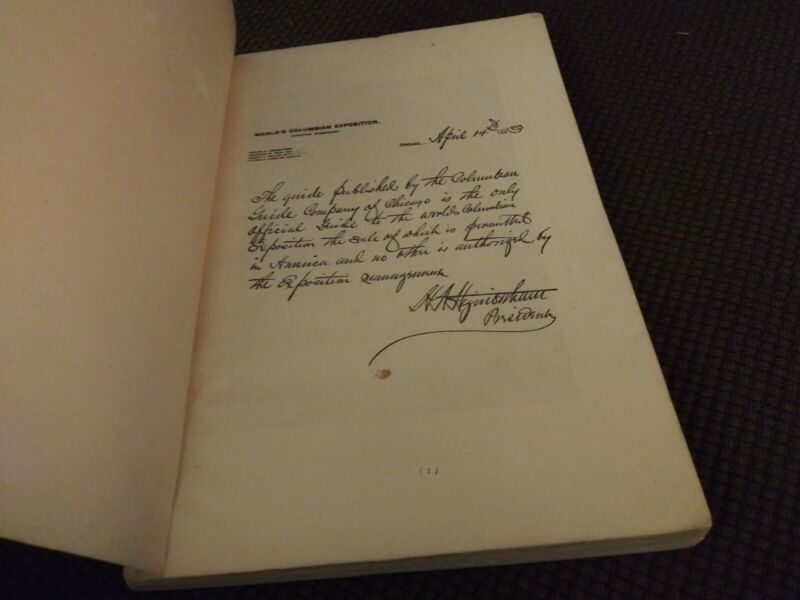 WORLD'S COLUMBIAN EXPOSITION.
CHICAGO, April 14
The guide published by the Columbian
Guide Company of Chicago is the only
official Guide to the Worlds Columbian
Exposition the sale of which is permitted
in America and no other is authorized by
the Exposition management
President